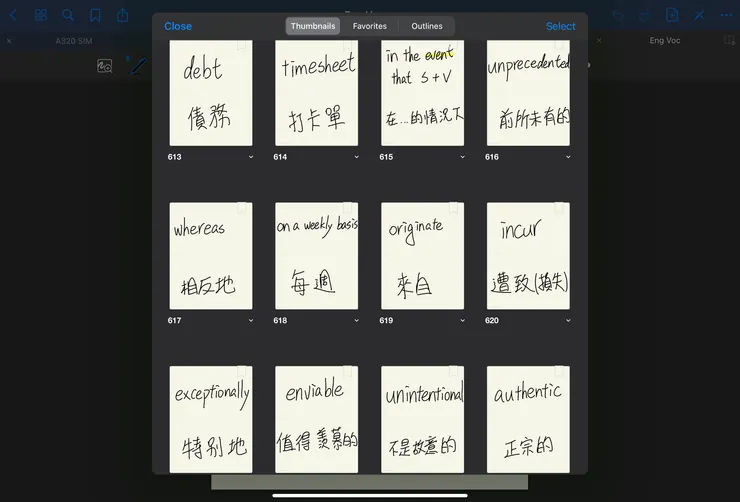 A320 SIM
Eng Voc
Close
Thumbnails
Favorites
Outlines
Select
debt
債務
613
timesheet
打卡單
614
in the event
that S+V
在...的情況下
615
unprecedented
前所未有的
616
whereas
相反地
617
on a weekly basis
每週
618
originate
來自
619
incur
遭致(損失)
620
exceptionally
特別地
enviable
值得羨慕的
unintentional
不是故意的
authentic
正宗的